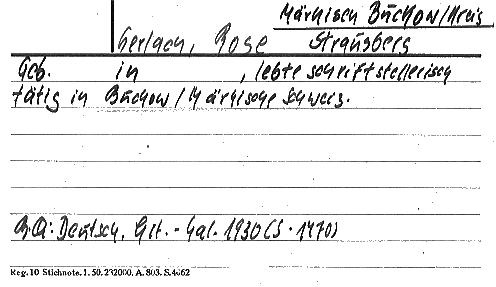 Märkisch Buckow/Kreis
Gerlach, Rose Strausberg
Geb. in , lebte schriftstellerisch
tätig in Buckow/Märkische Schweiz.
BQ: Deutsch. Lit. - Kal. 1930 (S. 1470)
Reg. 10 Stichnote. 1. 50. 232000. A. 803. S. 4062